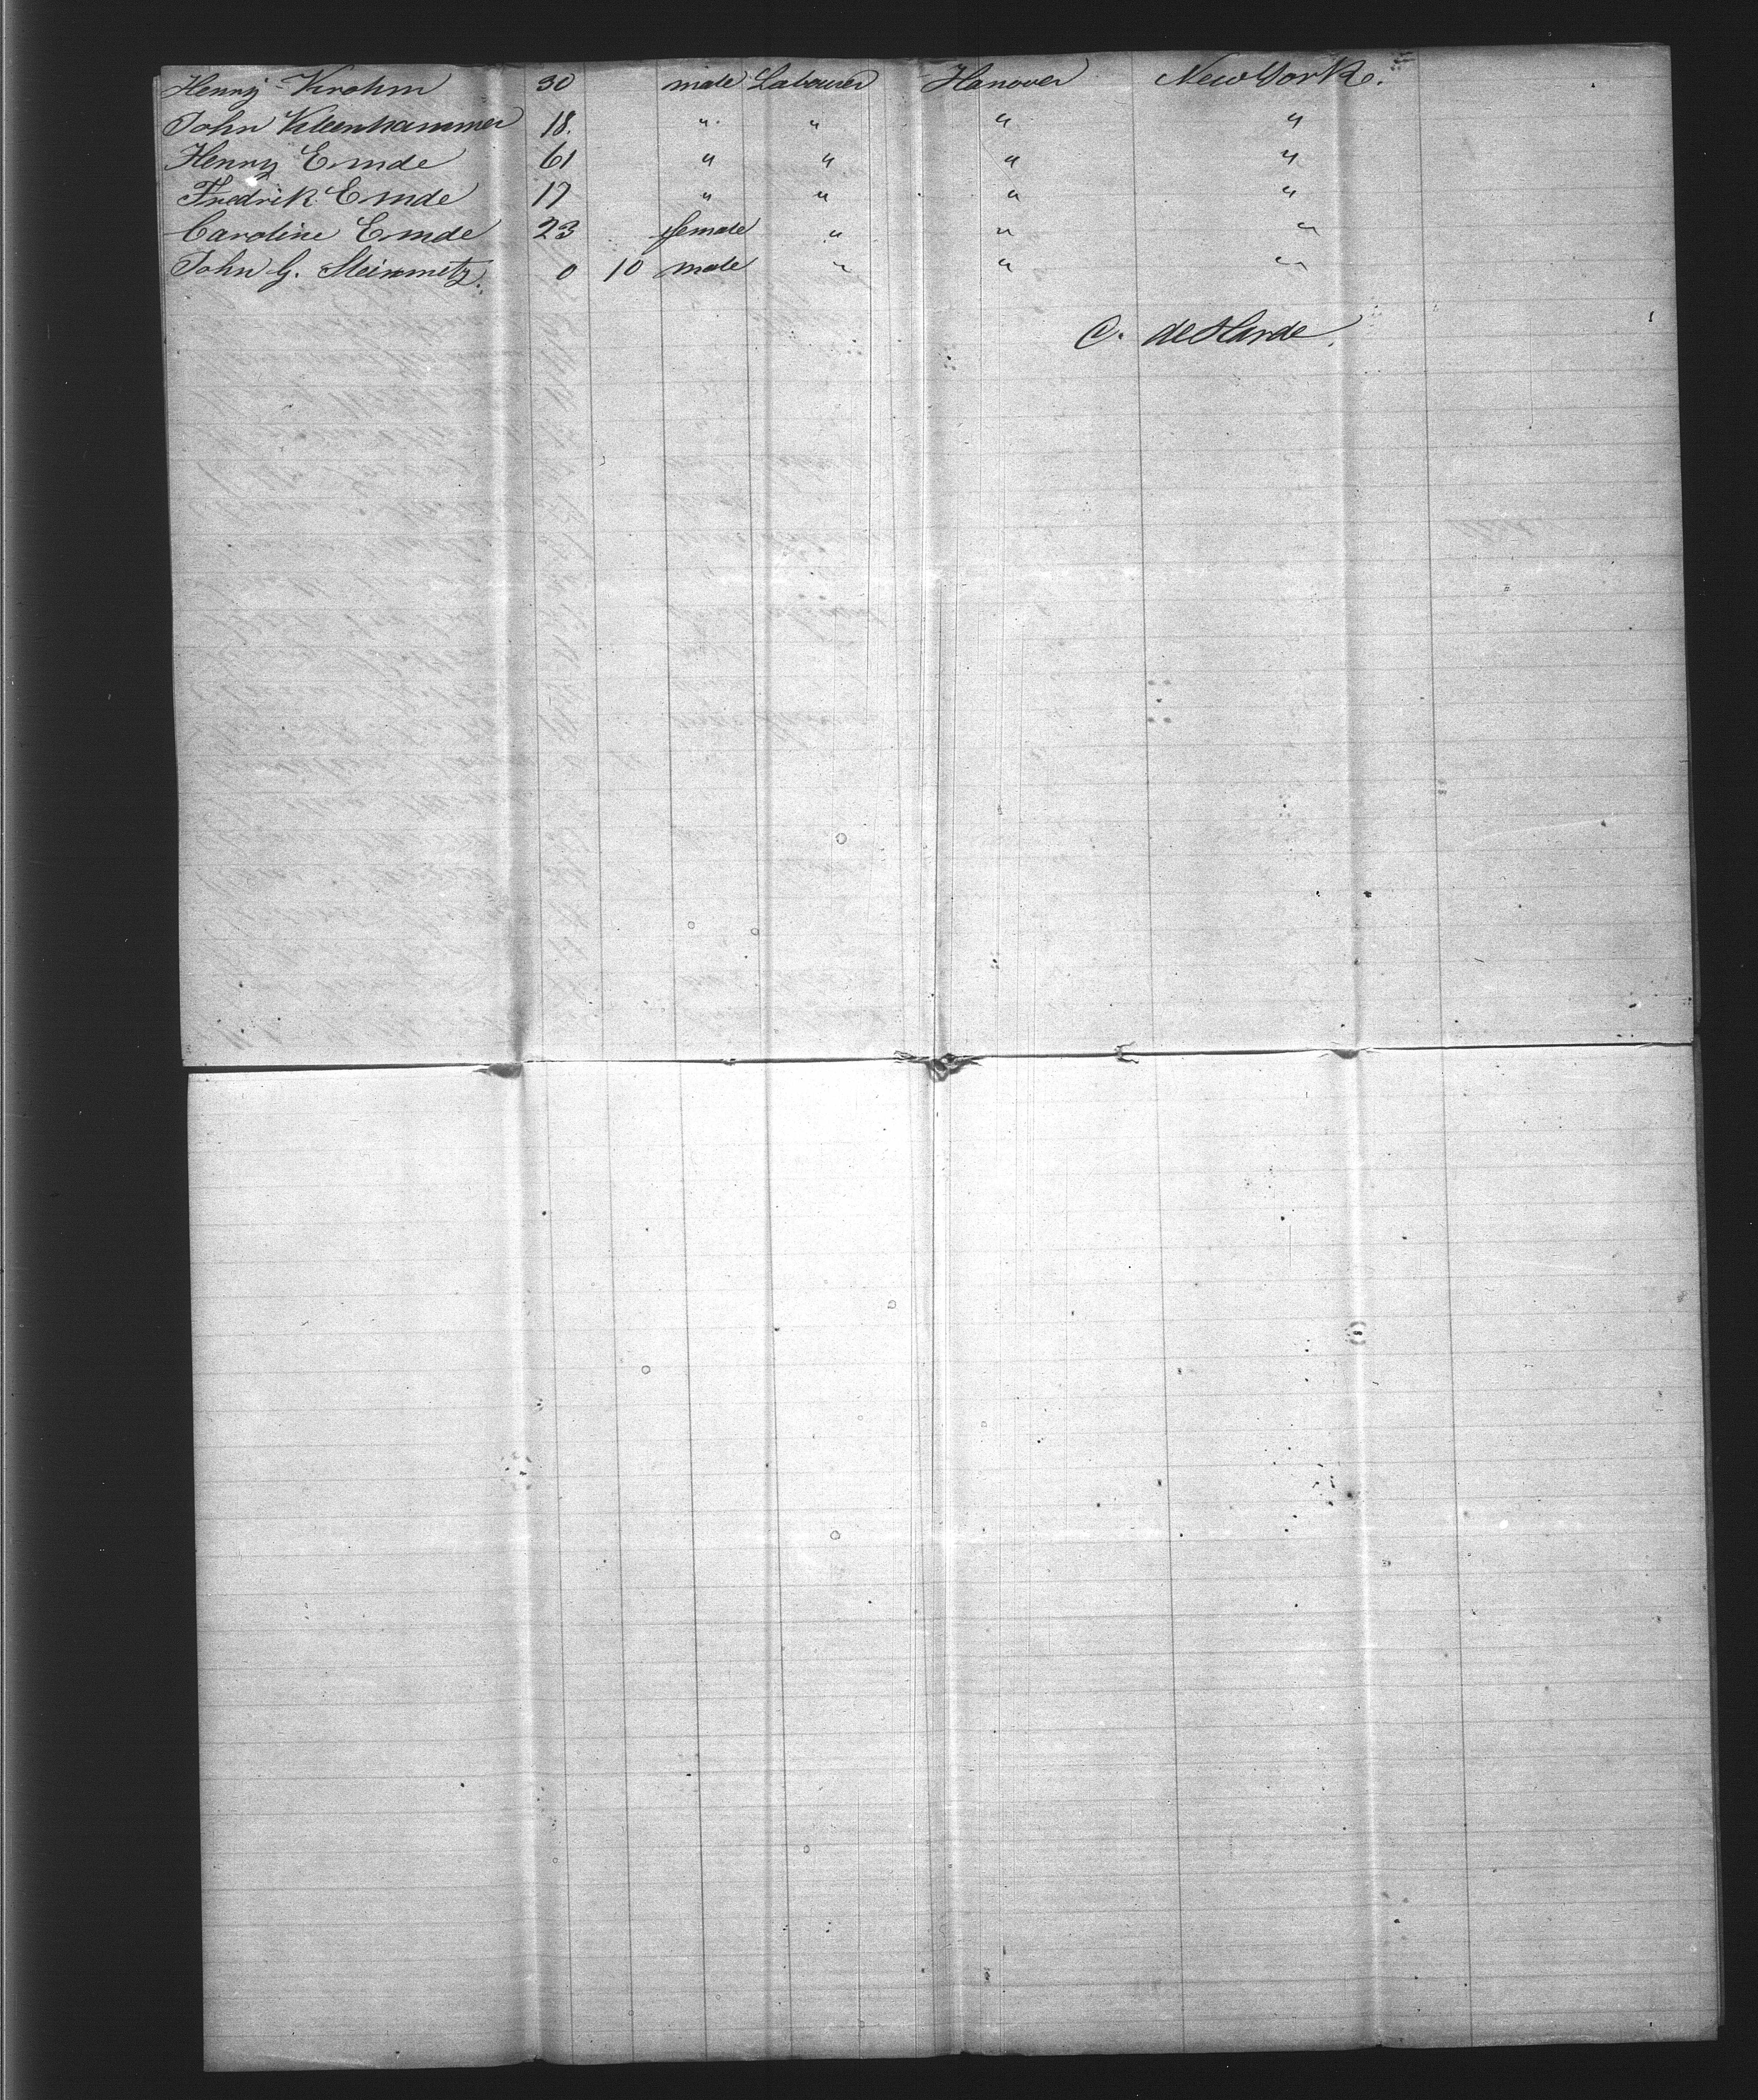 Henry Krohm 30 male Labourer Hanover New York.
John Kleenhammer 18. " " " "
Henry Emde 61 " " " "
Fredrik Emde 17 " " " "
Caroline Emde 23 female " " "
John G. Steinmetz. 0 10 male " " "
C. de Harde.